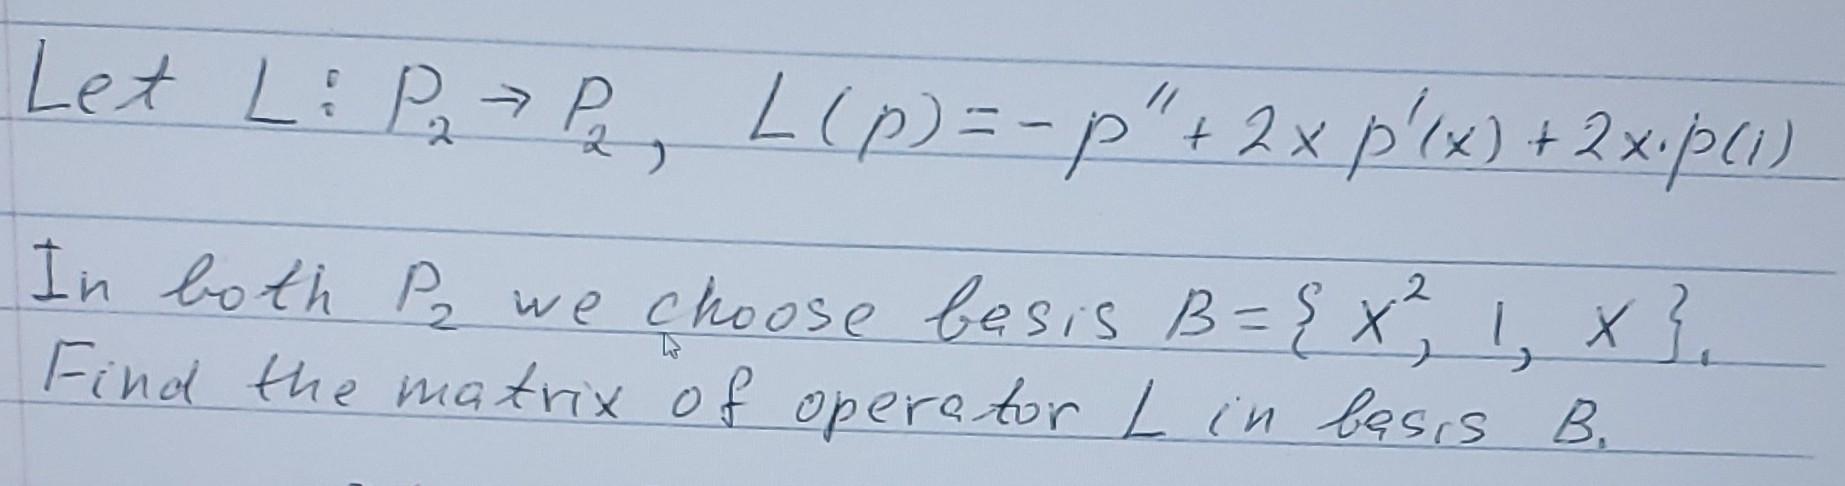 Let L: P₂ → P₂, L(p) = -p'' + 2x p'(x) + 2x·p(1)
In both P₂ we choose basis B = {x², 1, x}.
Find the matrix of operator L in basis B.